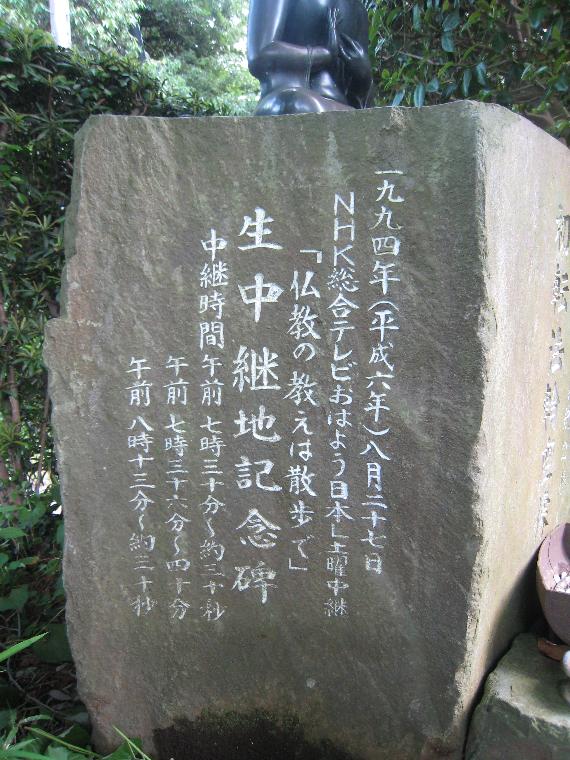 一九九四年(平成六年)八月二十七日
NHK総合テレビおはよう日本L土曜中継
「仏教の教えは散歩で」
生中継地記念碑
中継時間 午前 七時三十分〜約三十秒
午前 七時三十六分〜四十分
午前 八時十三分〜約三十秒